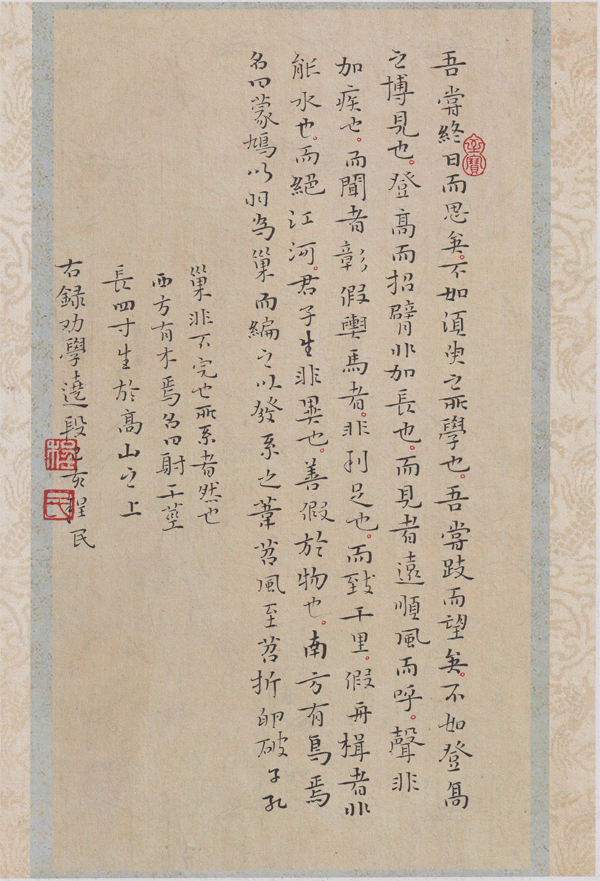 吾嘗終日而思矣。不如須臾之所學也。吾嘗跂而望矣。不如登高
之博見也。登高而招臂非加長也。而見者遠順風而呼。聲非
加疾也。而聞者彰假輿馬者。非利足也。而致千里。假舟楫者非
能水也。而絕江河。君子生非異也。善假於物也。南方有鳥焉
名曰蒙鳩以羽為巢而編之以發系之葦苕風至苕折卵破子死
巢非不完也所系者然也
西方有木焉名曰射干莖
長四寸生於高山之上
右錄劝學選段己亥程民